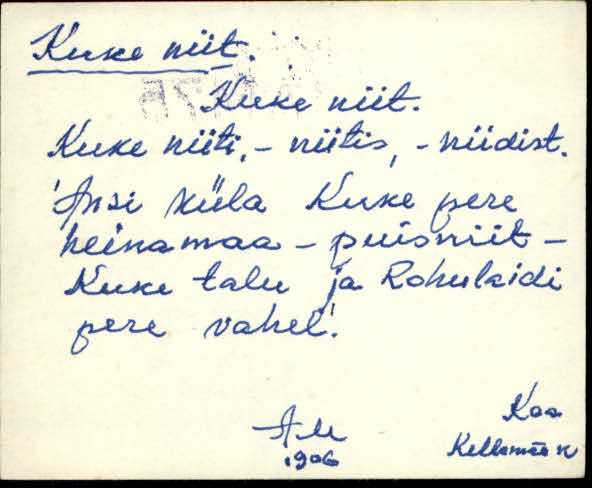 Kuke niit.
Kuke niit.
Kuke niiti, - niitis, - niidist.
'Ansi küla Kuke pere
heinamaa - puisniit -
Kuke talu ja Rohulaidi
pere vahel'.
AM
1906
Kaa